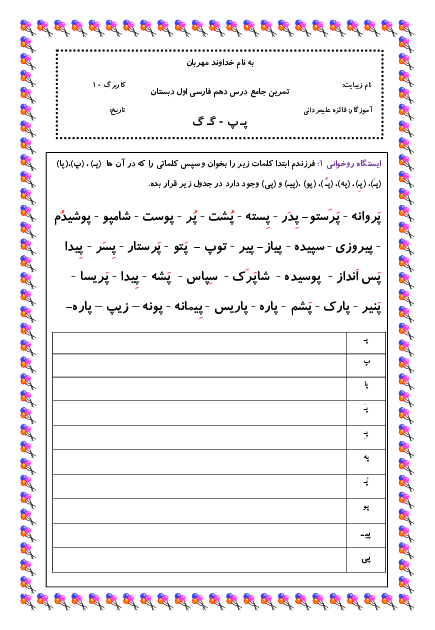 به نام خداوند مهربان
نام زیبایت:
تمرین جامع درس دهم فارسی اول دبستان
کاربرگ ۱۰
آموزگار: فائزه علیمردانی
تاریخ:
پـ پ - گـ گ
ایستگاه روخوانی ۱: فرزندم ابتدا کلمات زیر را بخوان و سپس کلماتی را که در آن ها (پـ)، (پ)، (پا)
(پَـ)، (پِـ)، (په)، (پُـ)، (پو)، (پیـ) و (پی) وجود دارد در جدول زیر قرار بده.
پَروانه - پَرَستو – پِدَر - پِسته - پُشت - پُر - پوست - شامپو - پوشیدَم
- پیروزی - سپیده - پیاز – پیر - توپ – پَتو - پَرستار - پِسَر - پِیدا
پَس اَنداز - پوسیده - شاپَرَک - سِپاس - پَشه - پِیدا - پَریسا -
پَنیر - پارک - پَشم - پاره - پاریس - پِیمانه - پونه – زیپ – پاره–
پـ
پ
پا
پَـ
پِـ
په
پُـ
پو
پیـ
پی